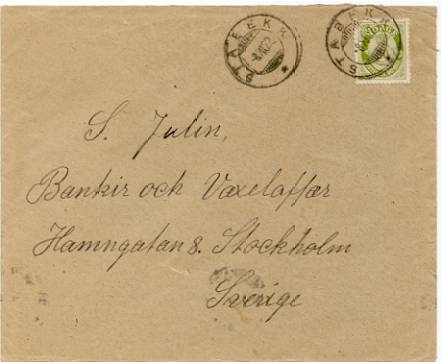 STABEKK
STABEKK
S. Julin,
Bankir och Vaxelaffær
Hamngatan 8. Stockholm
Sverige